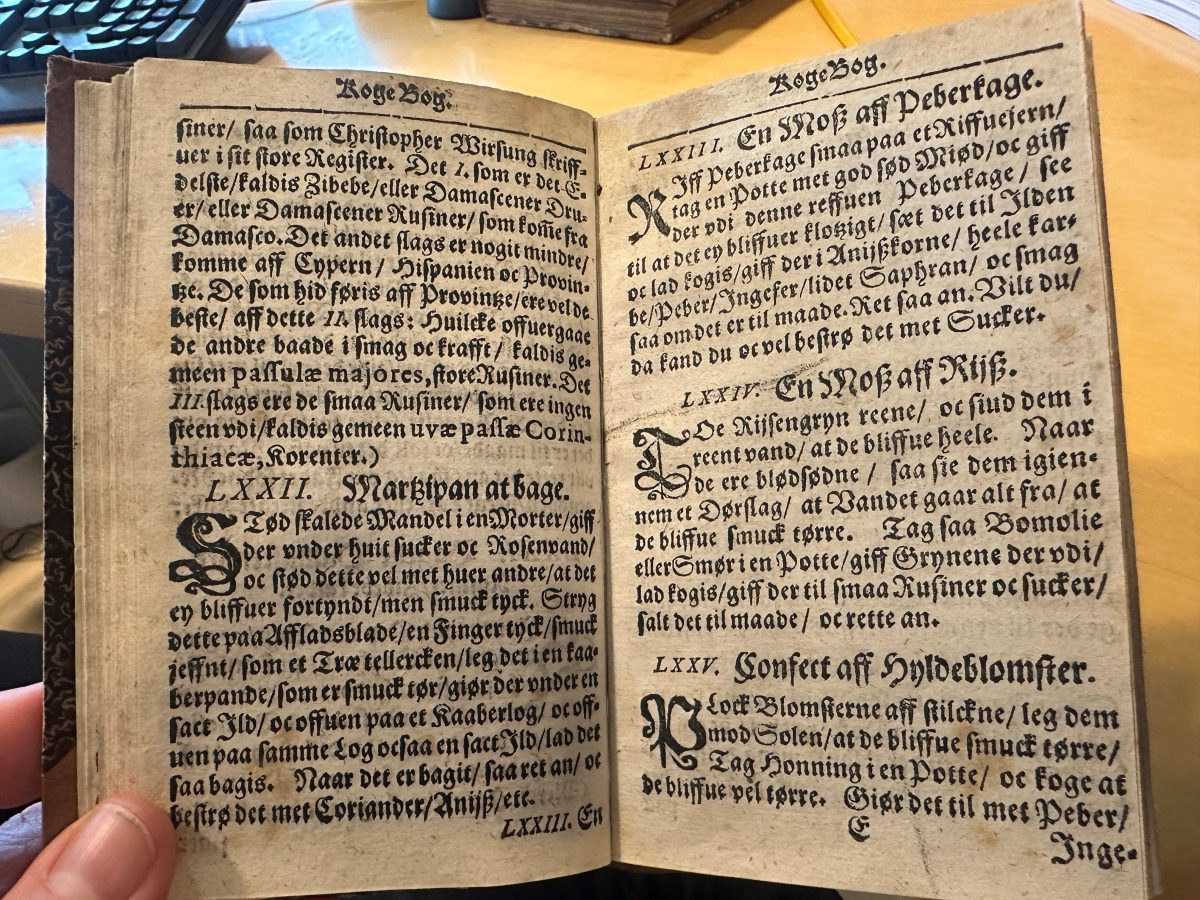 KogeBog.
siner/ saa som Christopher Wirsung skriff-
uer i sit store Register. Det I. som er det E-
delste/kaldis Zibebe/eller Damascener Dru-
er/ eller Damascener Rusiner/ som kom̃e fra
Damasco. Det andet slags er nogit mindre/
komme aff Cypern/ Hispanien oc Provin-
tze. De som hid føris aff Provintze/ere vel de
beste/ aff dette II. slags: Huilcke offuergaae
de andre baade i smag oc krafft/ kaldis ge-
meen passulæ majores, store Rusiner. Det
III. slags ere de smaa Rusiner/ som ere ingen
steen vdi/kaldis gemeen uvæ passæ Corin-
thiacæ, Korenter.)
LXXII. Martzipan at bage.
STød skalede Mandel i en Morter/giff
der vnder huit sucker oc Rosenvand/
oc stød dette vel met huer andre/at det
ey bliffuer fortyndt/men smuck tyck. Stryg
dette paa Affladsblade/en Finger tyck/smuck
jeffnt/som et Træ tellercken/leg det i en kaa-
berpande/som er smuck tør/giør der vnder en
sact Ild/ oc offuen paa et Kaaberlog/ oc off-
uen paa samme Log ocsaa en sact Ild/lad det
saa bagis. Naar det er bagit/ saa ret an/ oc
bestrø det met Coriander/Anijß/etc.
LXXIII. En
KogeBog.
LXXIII. En Moß aff Peberkage.
RIff Peberkage smaa paa et Riffuejern/
tag en Potte met god sød Miød/oc giff
der vdi denne reffuen Peberkage/ see
til at det ey bliffuer klotzigt/ sæt det til Ilden
oc lad kogis/giff der i Anijßkorne/ heele kar-
be/Peber/Ingefer/lidet Saphran/ oc smag
saa om det er til maade. Ret saa an. Vilt du/
da kand du oc vel bestrø det met Sucker.
LXXIV. En Moß aff Rijß.
TOe Rijsengryn reene/ oc siud dem i
reent vand/at de bliffue heele. Naar
de ere blødsødne/ saa sie dem igien-
nem et Dørslag/ at Vandet gaar alt fra/ at
de bliffue smuck tørre. Tag saa Bomolie
eller Smør i en Potte/giff Grynene der vdi/
lad kogis/giff der til smaa Rusiner oc sucker/
salt det til maade/ oc rette an.
LXXV. Confect aff Hyldeblomster.
PLock Blomsterne aff stilckne/ leg dem
mod Solen/at de bliffue smuck tørre/
Tag Honning i en Potte/ oc koge at
de bliffue vel tørre. Giør det til met Peber/
E
Inge-